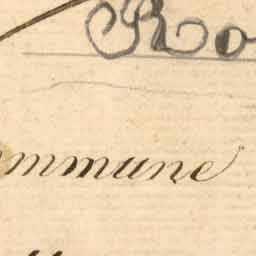 Ro
ommune